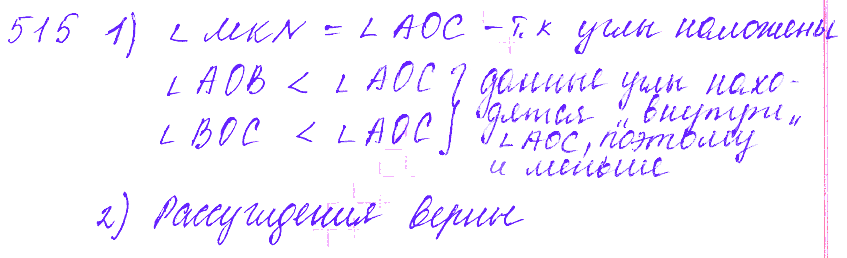 515 1) ∠ MKN = ∠ AOC – т.к углы наложены
∠ AOB < ∠ AOC } данные углы нахо-
дятся „внутри„
∠ BOC < ∠ AOC } ∠ AOC, поэтому
и меньше
2) Рассуждения верны